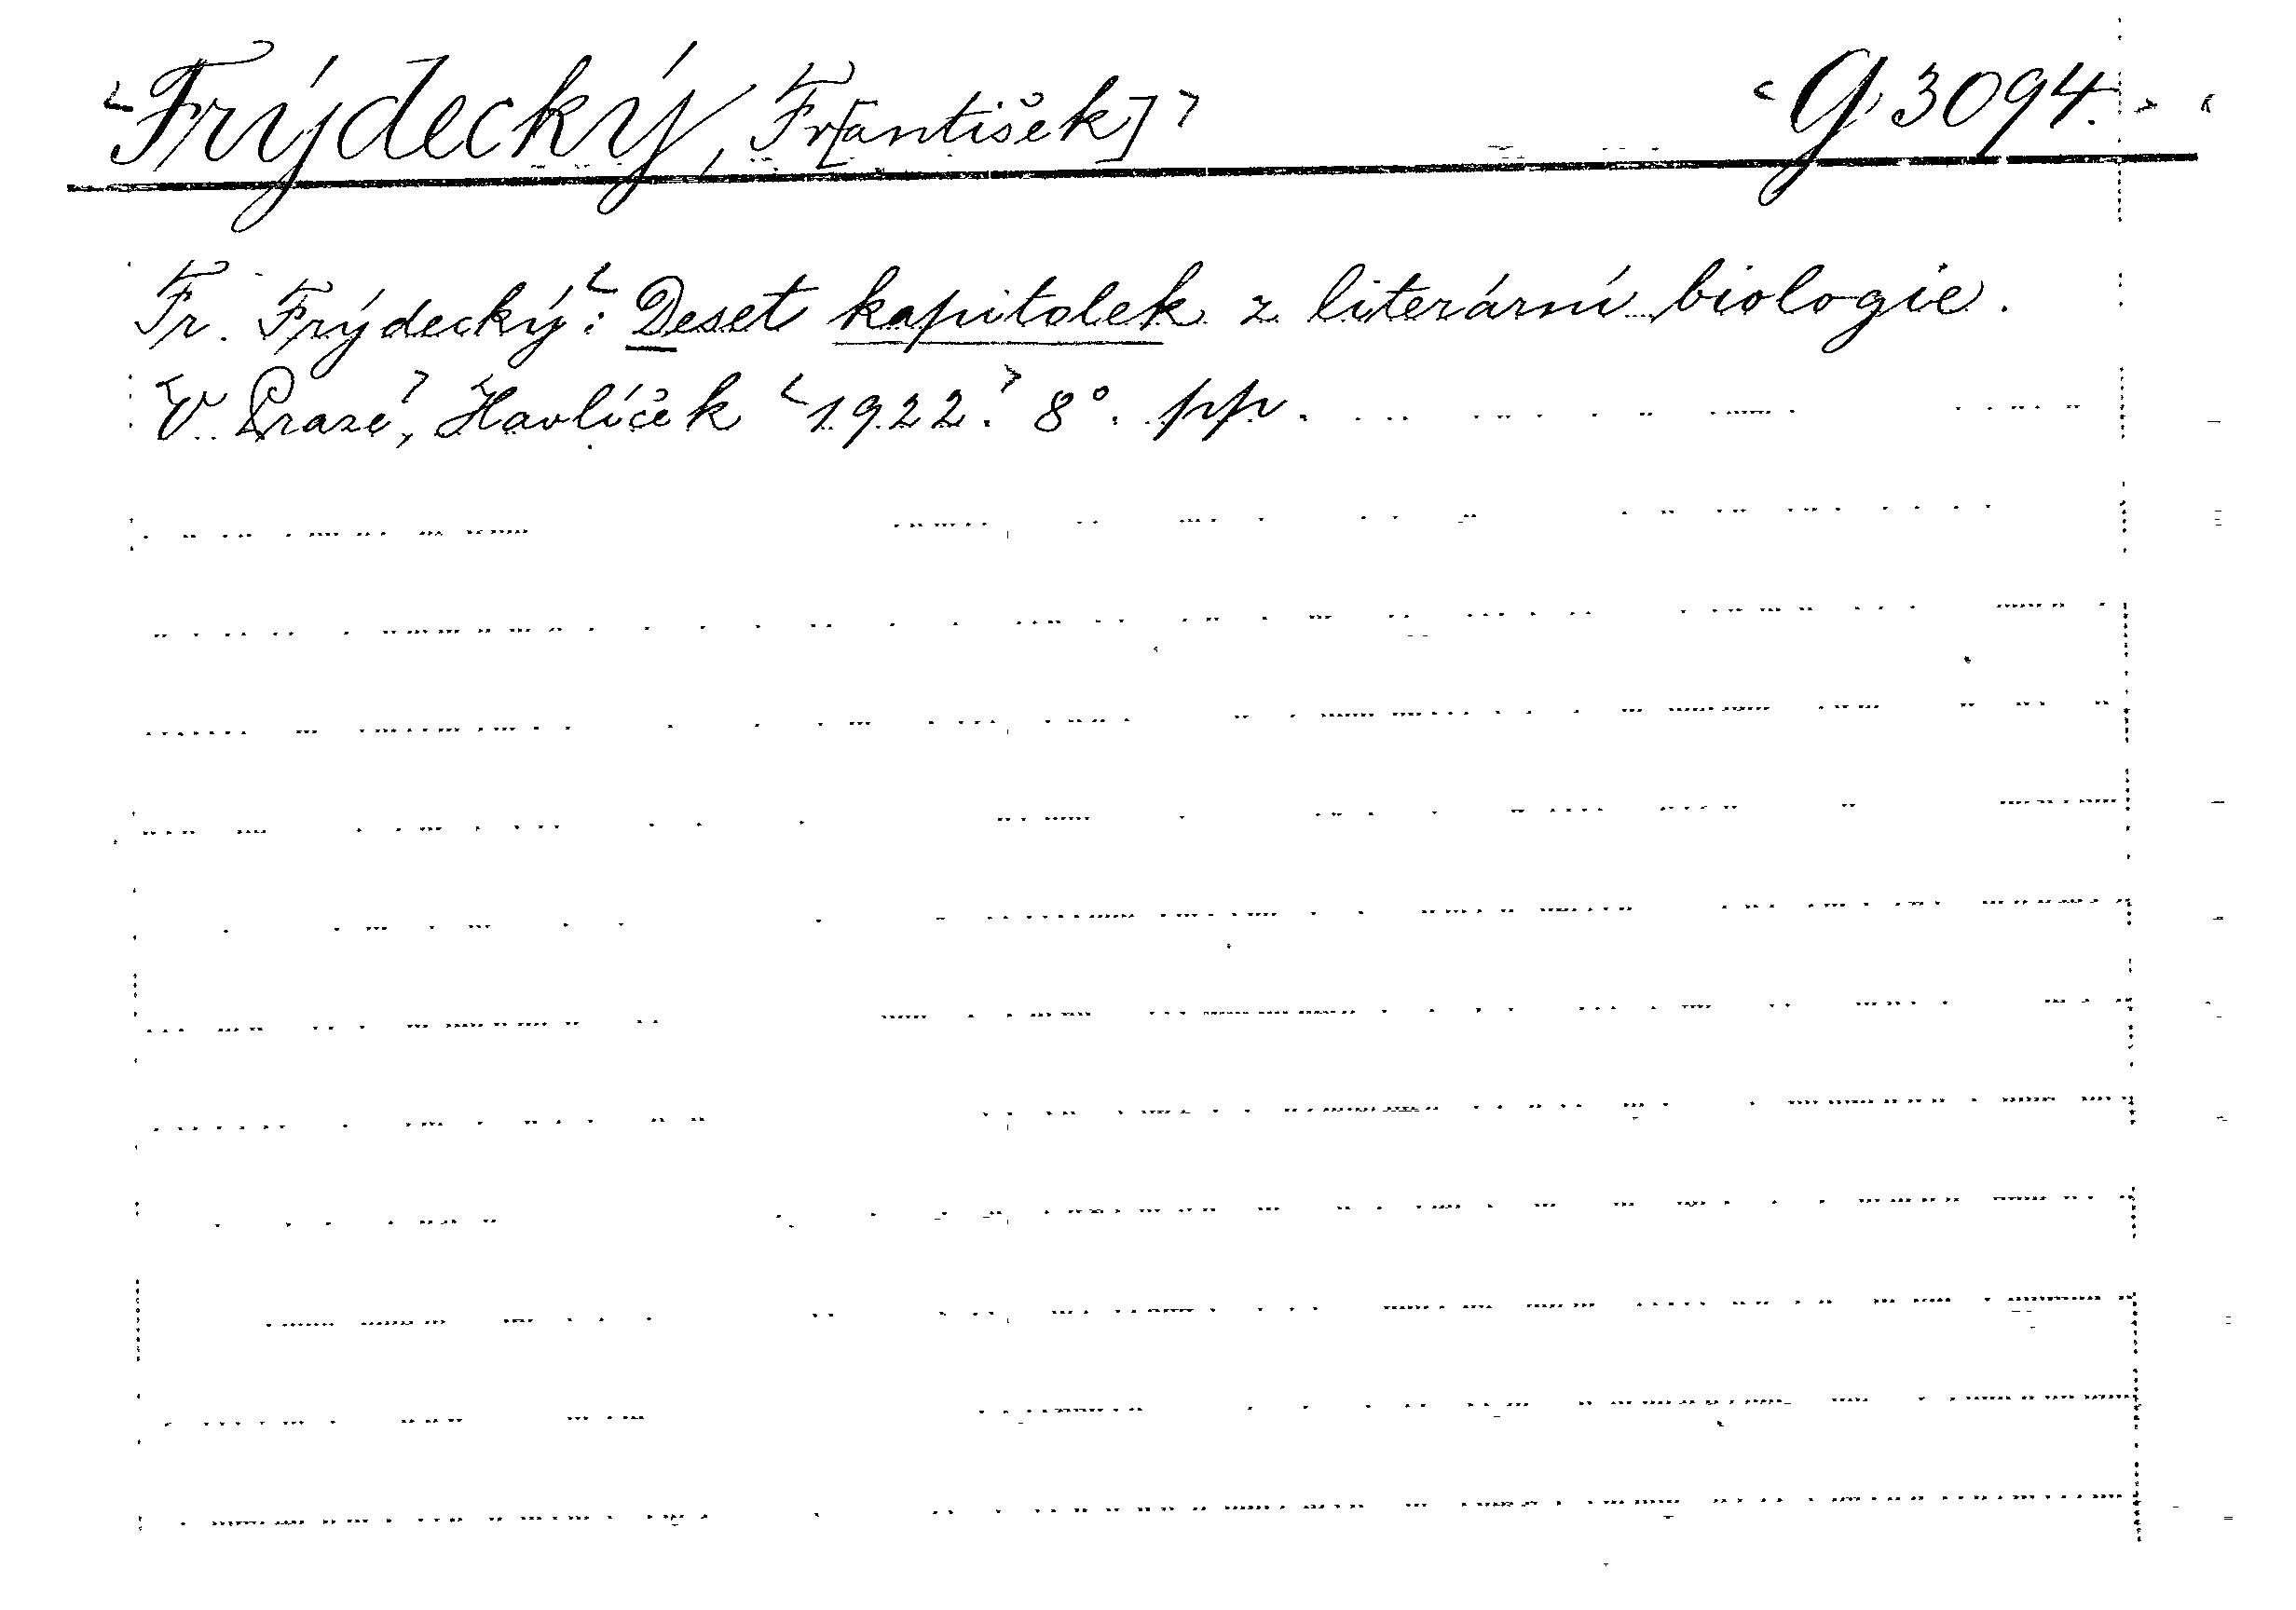 <Frýdecký, Fr[antišek]> <G 3094.>
Fr. Frýdecký: <Deset kapitolek z literární biologie.
V Praze>, Havlíček <1922.> 8°. pp.